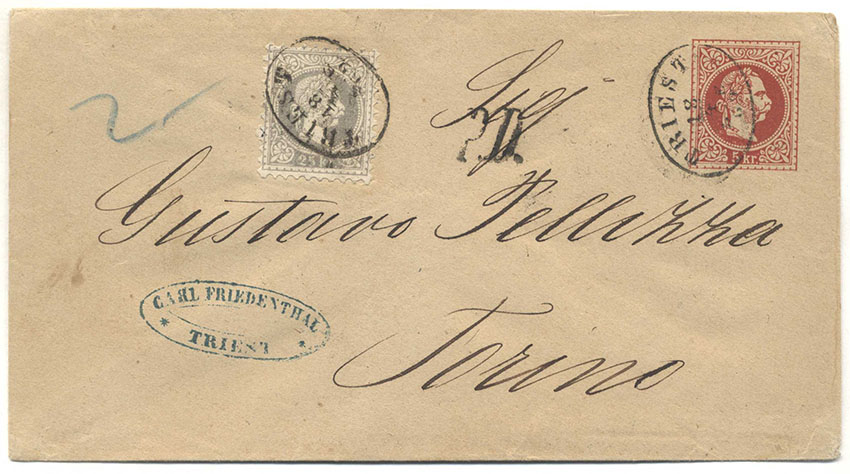 Sigr
P.D.
Gustavo Pellizza
Torino
CARL FRIEDENTHAL
TRIEST
TRIEST
TRIEST
5 Kr.
25